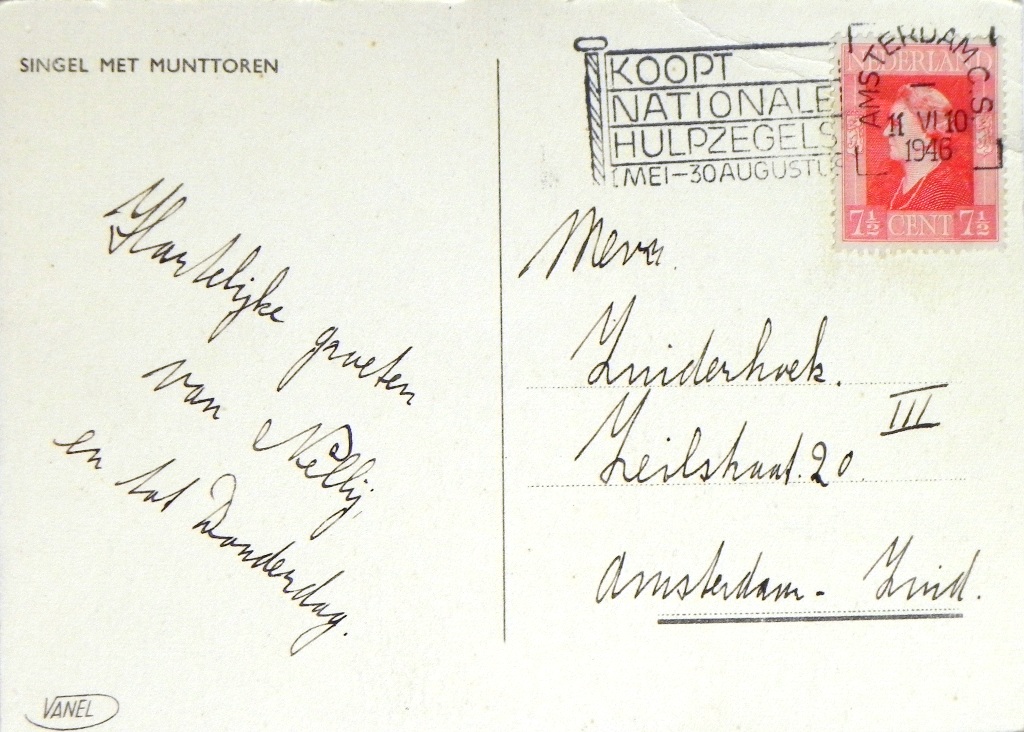 SINGEL MET MUNTTOREN
Hartelijke groeten
van Nellij,
en tot Donderdag.
VANEL
KOOPT
NATIONALE
HULPZEGELS
1 MEI-30 AUGUSTUS
AMSTERDAM C.S.
11 VI 10
1946
NEDERLAND
7½ CENT 7½
Mevr.
Zuiderhoek.
Zeilstraat. 20 III
Amsterdam - Zuid.